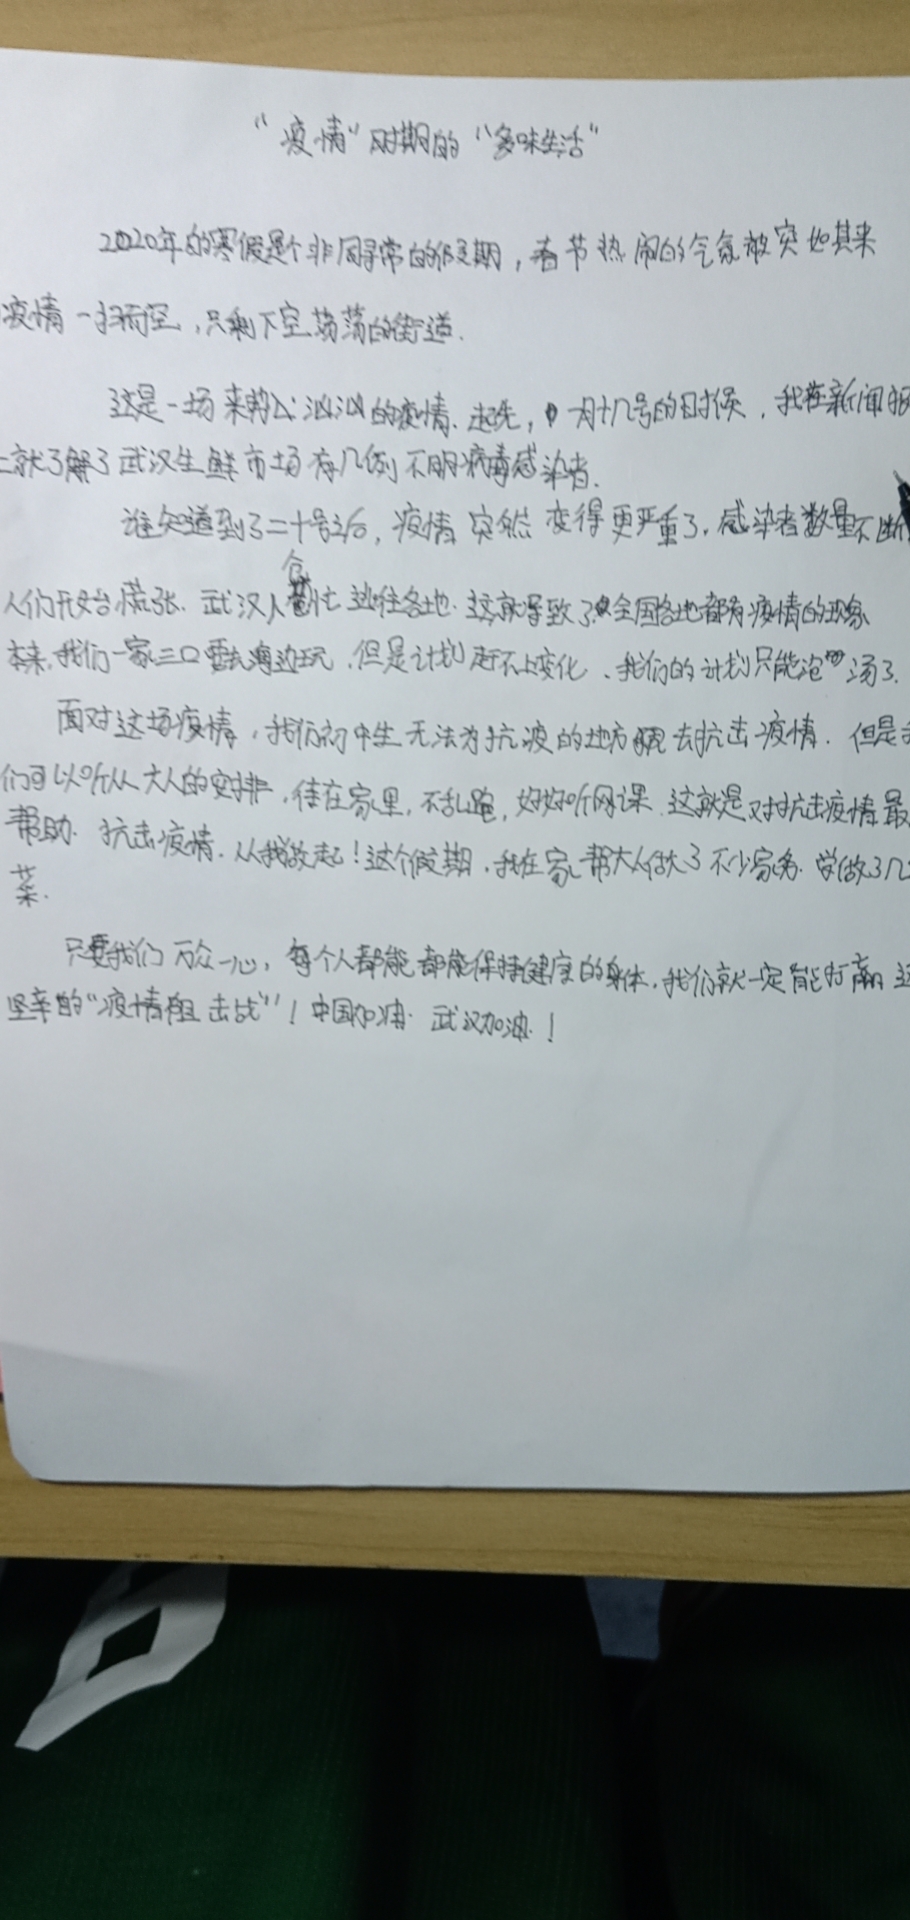 “疫情”时期的“多味生活”
2020年的寒假是个非同寻常的假期，春节热闹的气氛被突如其来
疫情一扫而空，只剩下空荡荡的街道.
这是一场来势汹汹的疫情.起先，一月十几号的时候，我在新闻报
上就了解了武汉生鲜市场有几例不明病毒感染者.
谁知道到了二十号之后，疫情突然变得更严重了.感染者数量不断
人们开始慌张.武汉人仓忙逃往各地.这就导致了全国各地都有疫情的现象
本来,我们一家三口要去海边玩.但是计划赶不上变化、我们的计划只能泡汤了.
面对这场疫情,我们初中生无法为抗疫的地方去抗击疫情.但是我
们可以听从大人的安排,待在家里,不乱跑,好好听网课.这就是对抗击疫情最
帮助.抗击疫情.从我做起!这个假期.我在家帮大人做了不少家务.学做了几
菜.
只要我们万众一心,每个人都能都能保持健康的身体.我们就一定能打赢这
坚辛的“疫情阻击战”!中国加油.武汉加油.!